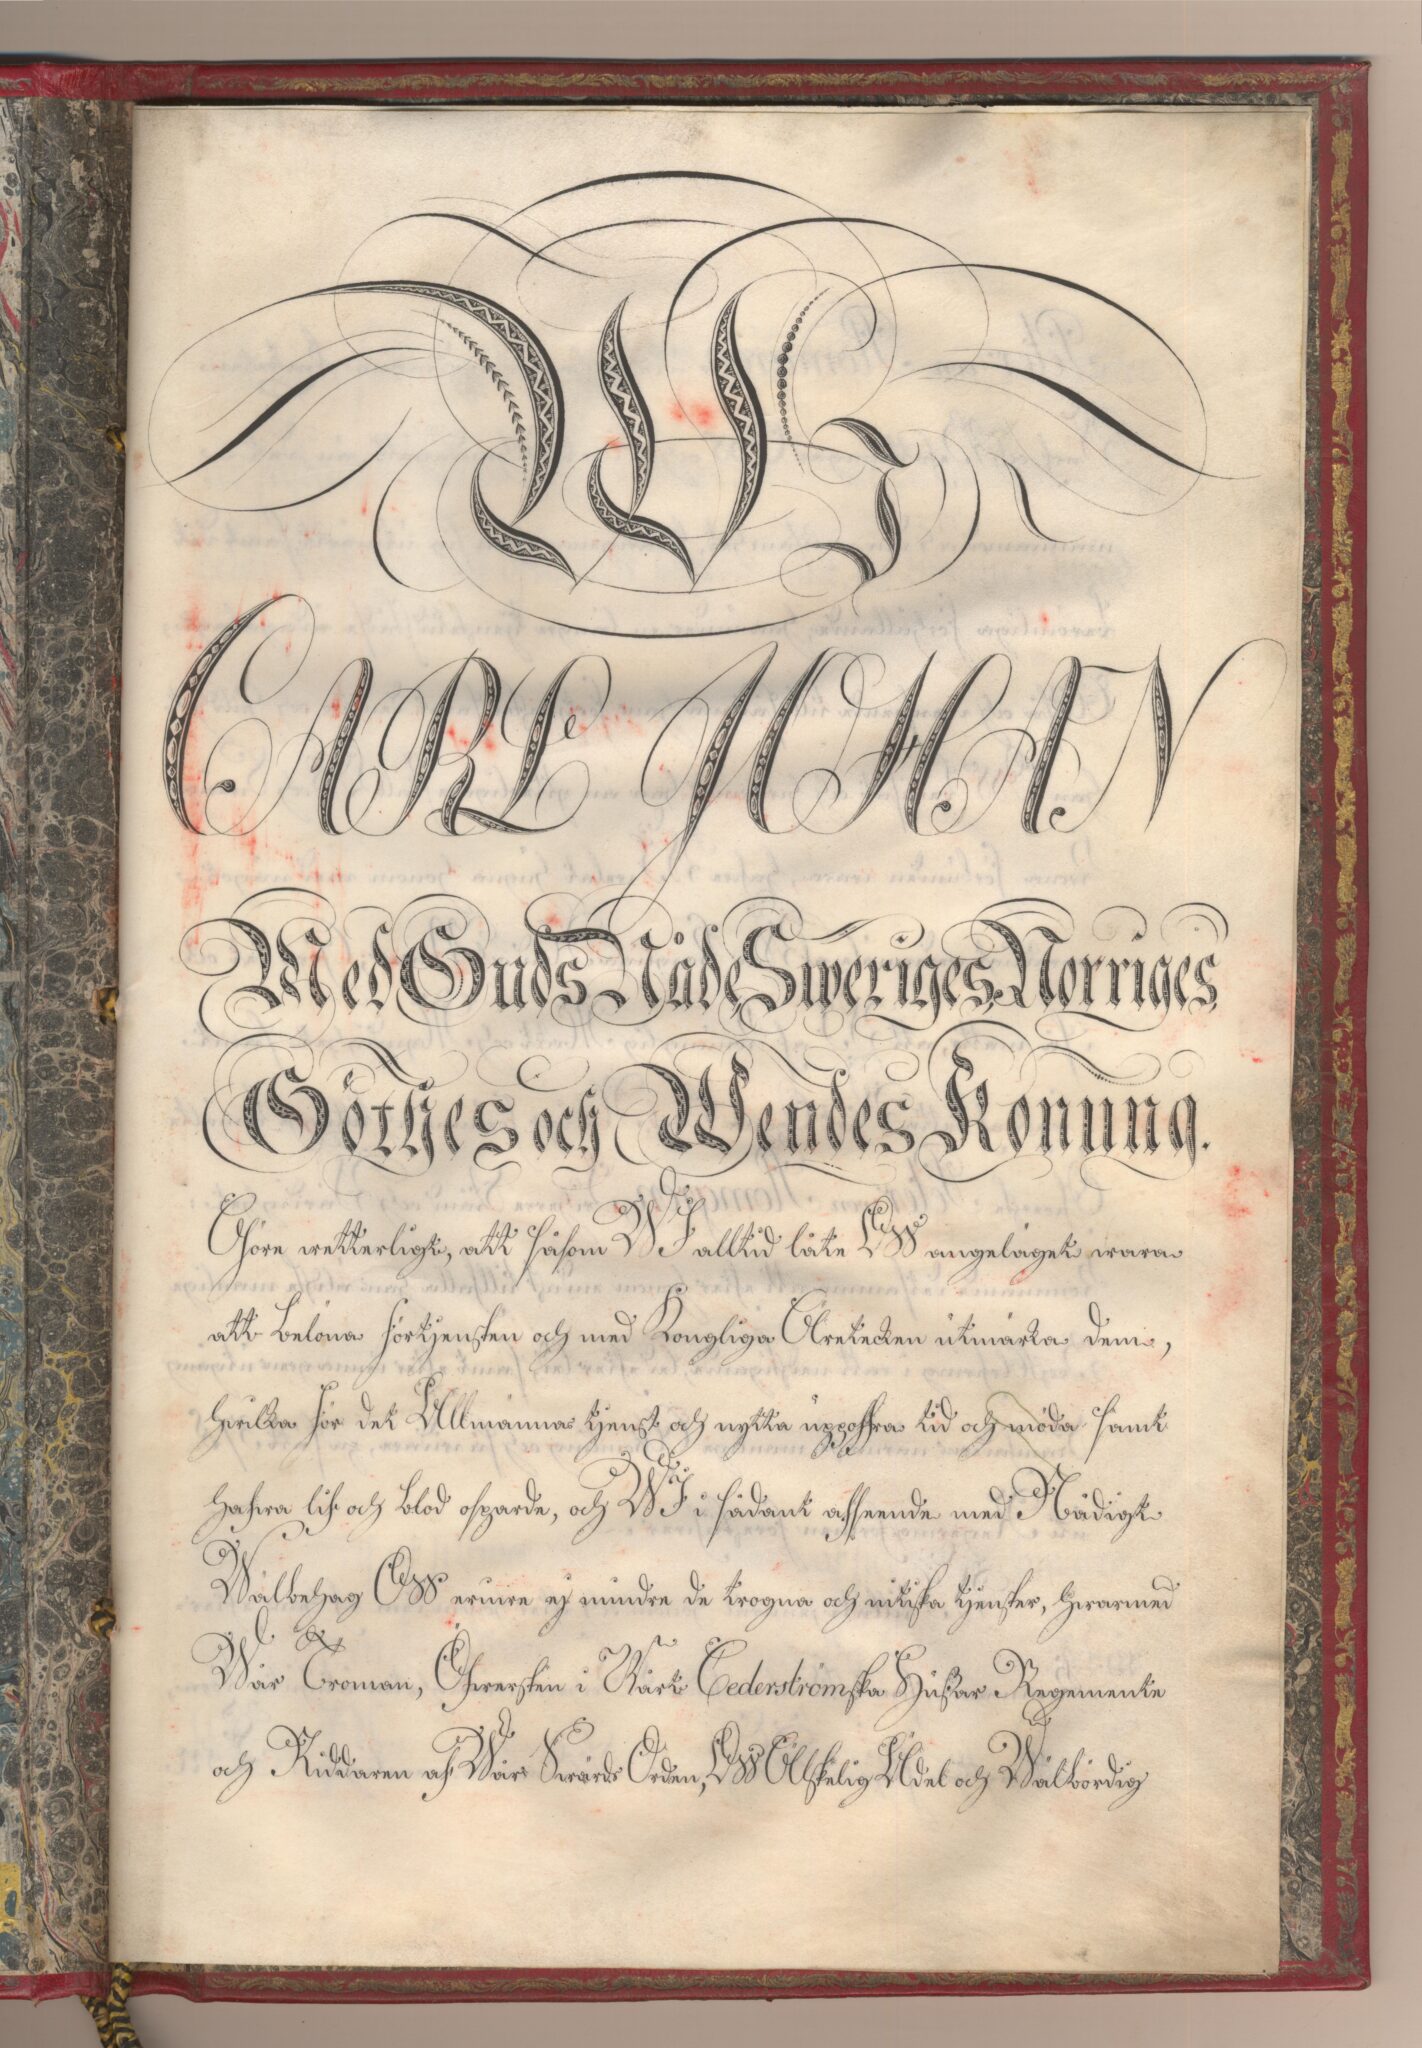 Wi
CARL JOHAN
Med Guds Nåde, Sweriges, Norriges,
Göthes och Wendes Konung.
Göre wetterligt, att såsom Wi alltid låte Oss angeläget wara
att belöna förtjensten och med Kongliga Äretecken utmärka dem,
hwilka för det Allmännas tjenst och nytta uppoffra tid och möda samt
hafwa lif och blod osparde, och Wi i sådant afseende med Nådigt
Wälbehag Oss erinre ej mindre de trogna och nitiska tjenster, hwarmed
Wår Troman, Öfwersten i Wårt Cederströmska Husar Regemente
och Riddaren af Wår Swärds Orden, Oss Älskelig Ädel och Wälbördig